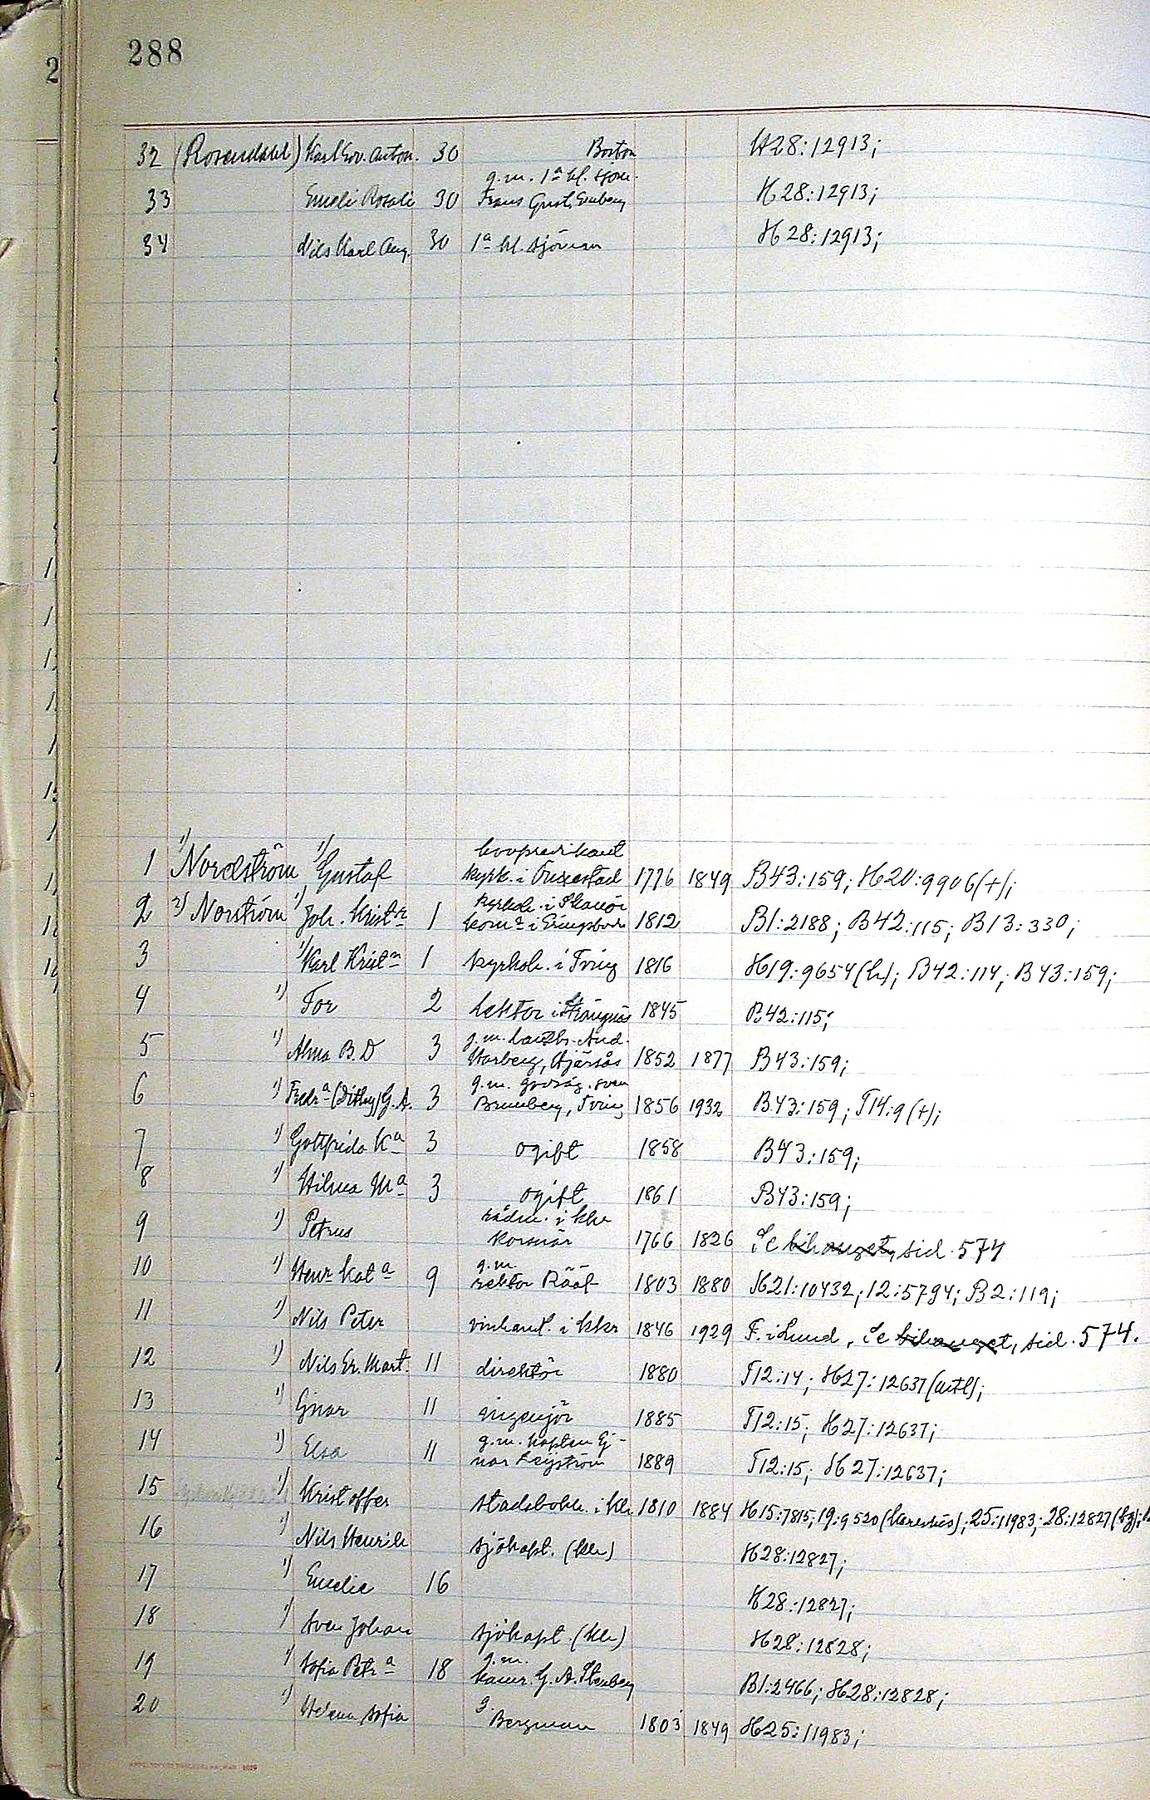 288
32 (Rosendahl) Karl Ew. Anton. 30 Boston H28:12913;
33 Emeli Rosali 30 g.m. 1a kl. sjöm. Frans Gust. Enberg H28:12913;
34 Nils Karl Aug. 30 1a kl. sjöman H28:12913;
1 1) Nordström 1) Gustaf kyrk. i 1776 1849 B43:159; H20:9906(+);
2 2) Norström 1) Joh. Kristn 1 kyrkoh. i Skanör 1812 B1:2188; B42:115; B13:330;
3 1) Karl Kristn 1 kyrkoh. i Tving 1816 H19:9654(h); B42:114; B43:159;
4 1) Tor 2 lektor i Strängnäs 1845 B42:115;
5 1) Alma B. D 3 g.m. lantbr. And. Warberg, Hjärsås 1852 1877 B43:159;
6 1) Fedra (Dithy) G. A. 3 g.m. Sven Brunberg, Tving 1856 1932 B43:159; T14:9(+);
7 1) Gottfrida Ka 3 ogift 1858 B43:159;
8 1) Wilma Ma 3 ogift 1861 B43:159;
9 1) Petrus rådm. i Kkr 1766 1826 Se bihanget, sid. 574
10 1) Henr. Kata 9 g.m. rektor Rääf 1803 1880 H21:10432; 12:5794; B2:119;
11 1) Nils Peter vinhandl. i Kkr 1846 1929 F. i Lund, Se bihanget, sid. 574.
12 1) Nils Er. Mart. 11 direktör 1880 T12:14; H27:12637(antl);
13 1) Gjnar 11 ingenjör 1885 T12:15; H27:12637;
14 1) Elsa 11 g.m. kapten Ej-
nar Leijström 1889 T12:15; H27:12637;
15 1) Kristoffer stadsbokh. i Kh. 1810 1884 H15:7815; 19:9520 25:11983; 28:12827
16 1) Nils Henrik sjökapt. (Kh) H28:12827;
17 1) Emelie 16 H28:12827;
18 1) Sven Johan sjökapt. (Kh) H28:12828;
19 1) Sofia Petra 18 g.m. kamr. G. A. Stenberg B1:2466; H28:12828;
20 1) Helena Sofia g Bergman 1803 1849 H25:11983;